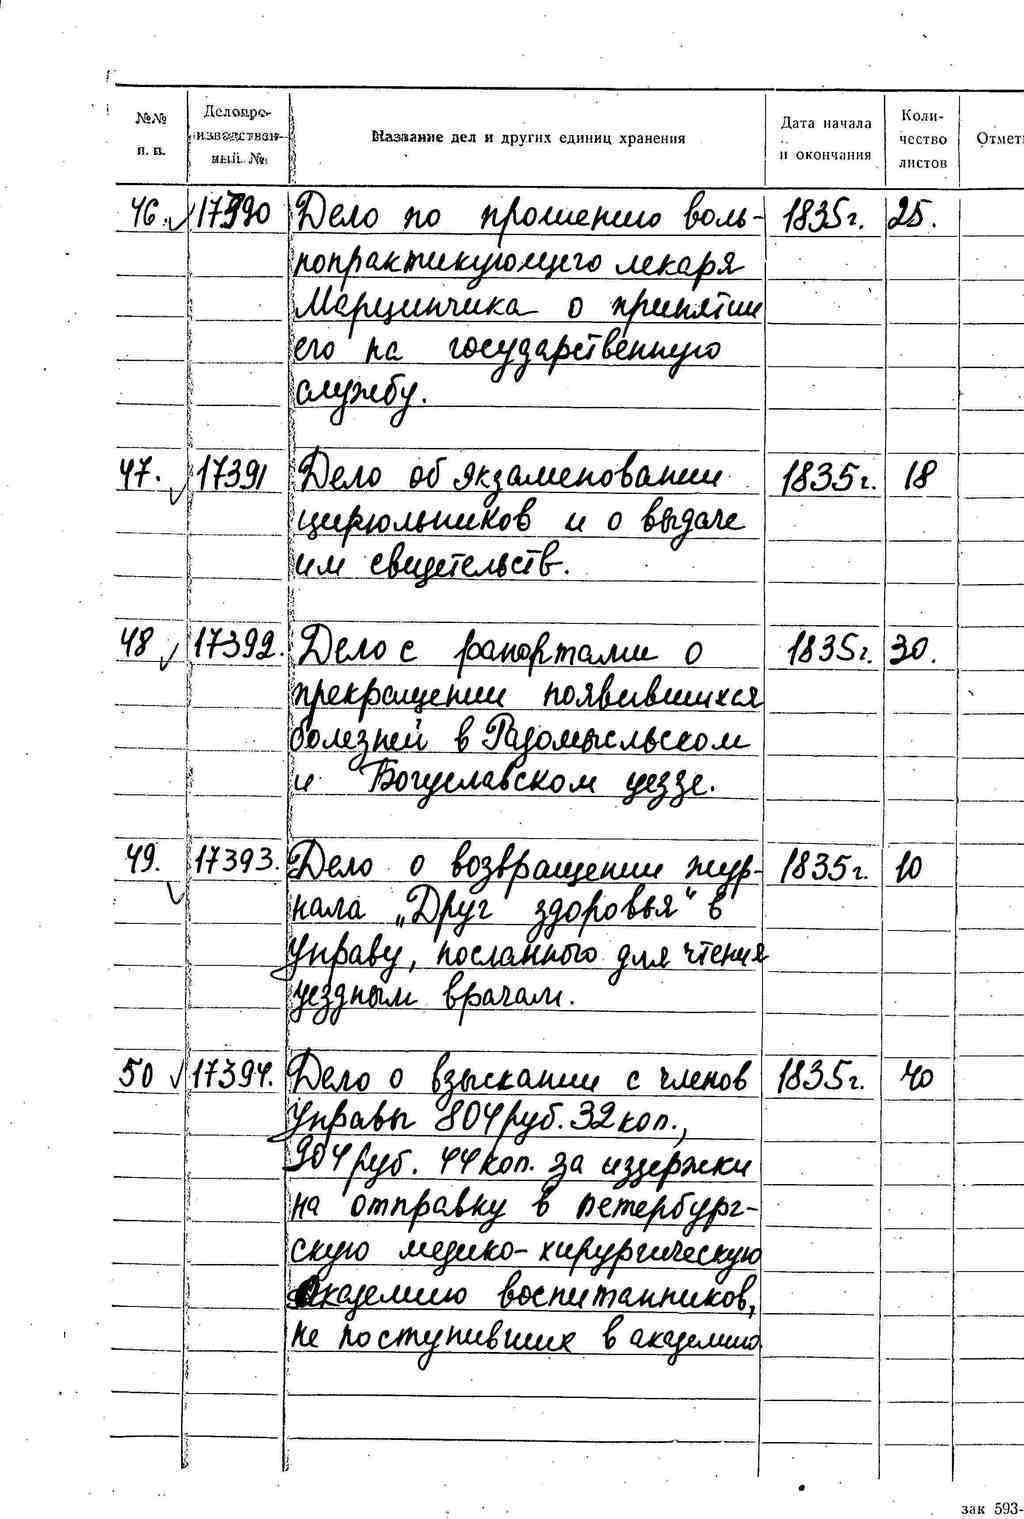 №№ п. п. Делопроизводственный № Название дел и других единиц хранения Дата начала и окончания Количество листов Отмет
46. 17390 Дело по прошению воль- 1835г. 25.
нопрактикующего лекаря
Марцинчика о принятии
его на государственную
службу.
47. 17391 Дело об экзаменовании 1835г. 18
цирюльников и о выдаче
им свидетельств.
48 17392. Дело с рапортами о 1835г. 30.
прекращении появившихся
болезней в Радомысльском
и Богуславском уезде.
49. 17393. Дело о возвращении жур- 1835г. 10
нала „Друг здоровья" в
Управу, посланного для чтения
уездным врачам.
50 17394. Дело о взыскании с членов 1835г. 40
Управы 804 руб. 32 коп.,
904 руб. 44 коп. за издержки
на отправку в Петербург-
скую медико-хирургическую
Академию воспитанников,
не поступивших в академию.
зак 593-